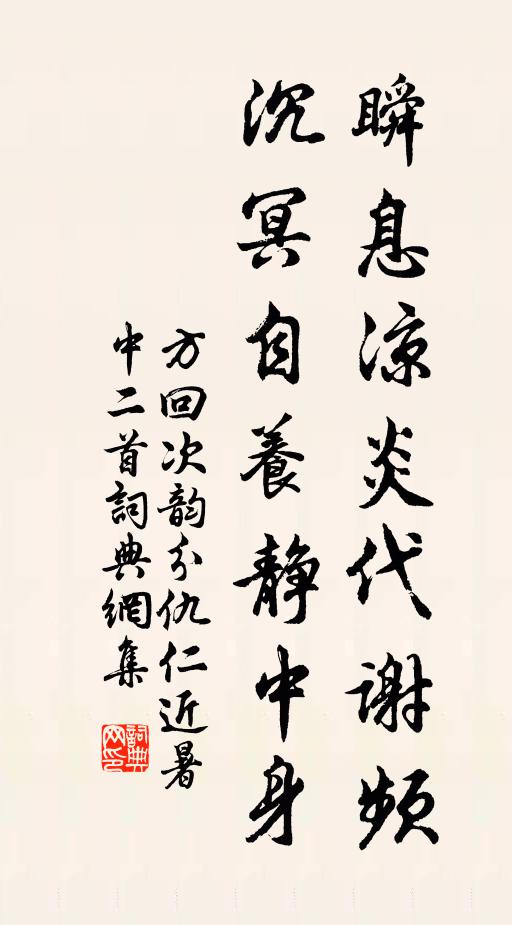 瞬息凉炎代谢頻
沉冥自養静中身
方回次韵分仇仁近暑
中二首詞典網集
詞典网印